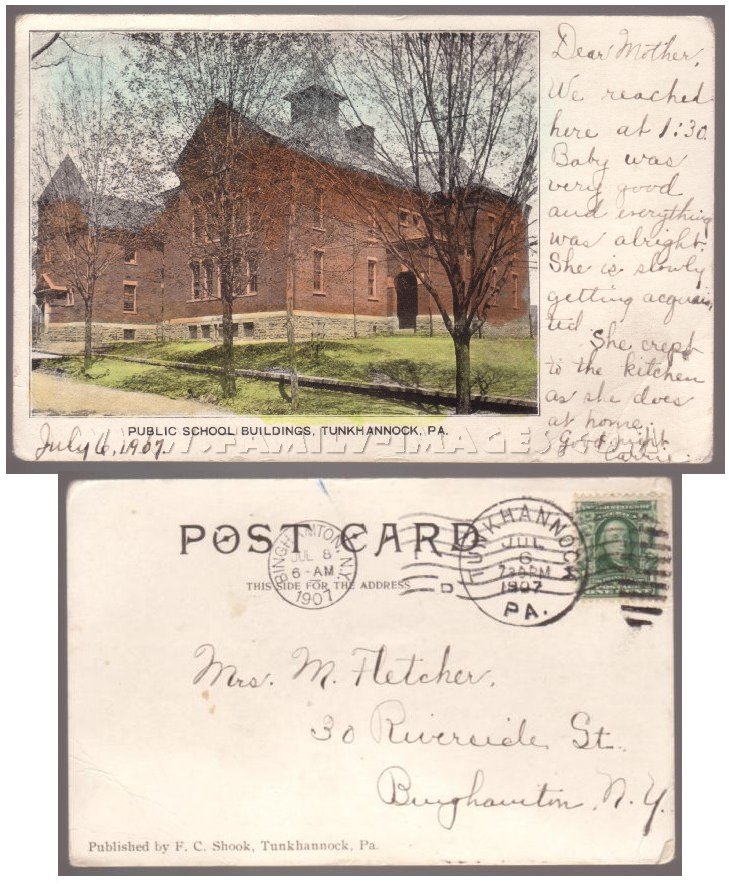 Dear Mother,
We reached
here at 1:30.
Baby was
very good
and everything
was alright.
She is slowly
getting acquain-
ted.
She crept
to the kitchen
as she does
at home.
Good night
Carrie.
PUBLIC SCHOOL BUILDINGS, TUNKHANNOCK, PA.
July 6, 1907.
POST CARD
THIS SIDE FOR THE ADDRESS
BINGHAMTON, N.Y.
JUL 8
6-AM
1907
D
TUNKHANNOCK
JUL
6
1907
PA.
Mrs. M. Fletcher,
30 Riverside St.
Binghamton, N.Y.
Published by F. C. Shook, Tunkhannock, Pa.